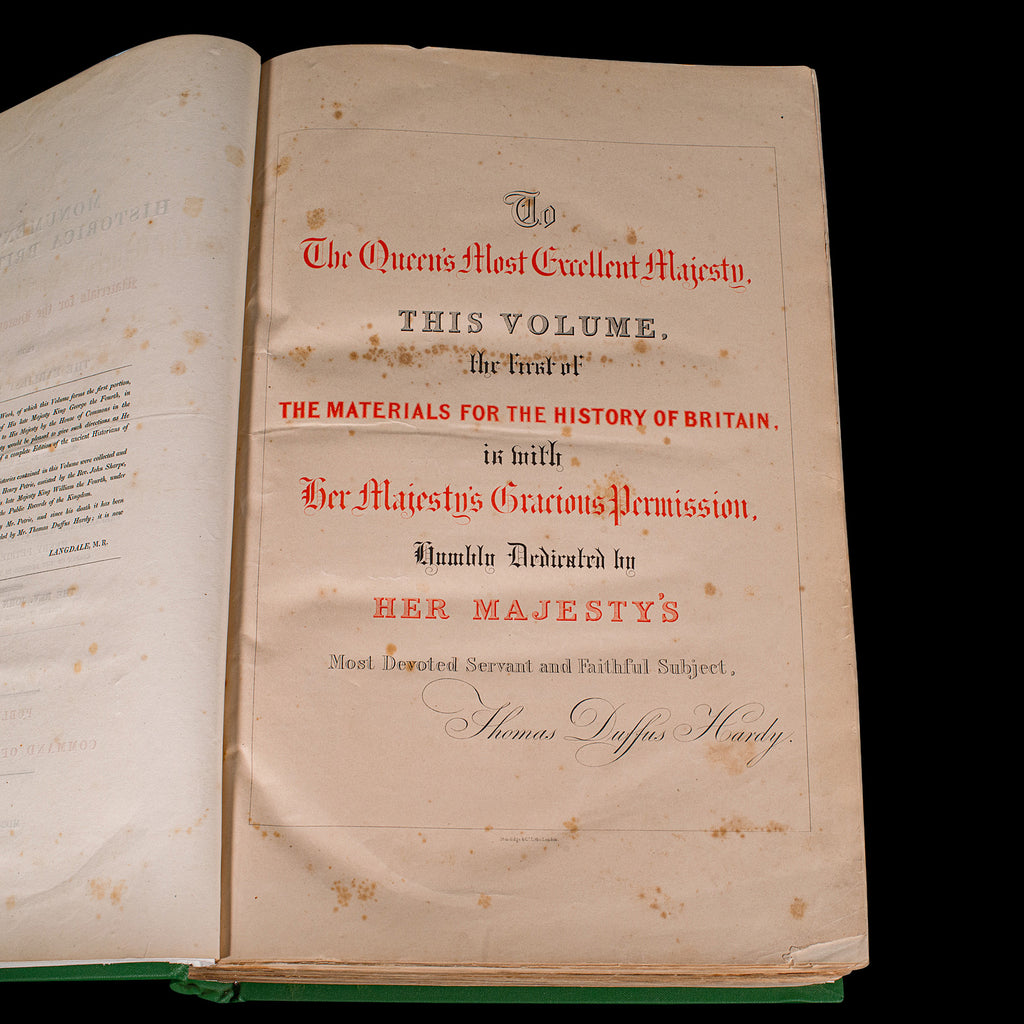 Work, of which this Volume forms the first portion,
of His late Majesty King George the Fourth, in
to His Majesty by the House of Commons in the
would be pleased to give such directions as He
of a complete Edition of the ancient Historians of
contained in this Volume were collected and
Henry Petrie, assisted by the Rev. John Sharpe,
late Majesty King William the Fourth, under
the Public Records of the Kingdom.
by Mr. Petrie, and since his death it has been
by Mr. Thomas Duffus Hardy; it is now
LANGDALE, M.R.
To
The Queen's Most Excellent Majesty,
THIS VOLUME,
the first of
THE MATERIALS FOR THE HISTORY OF BRITAIN,
is with
Her Majesty's Gracious Permission,
Humbly Dedicated by
HER MAJESTY'S
Most Devoted Servant and Faithful Subject,
Thomas Duffus Hardy.